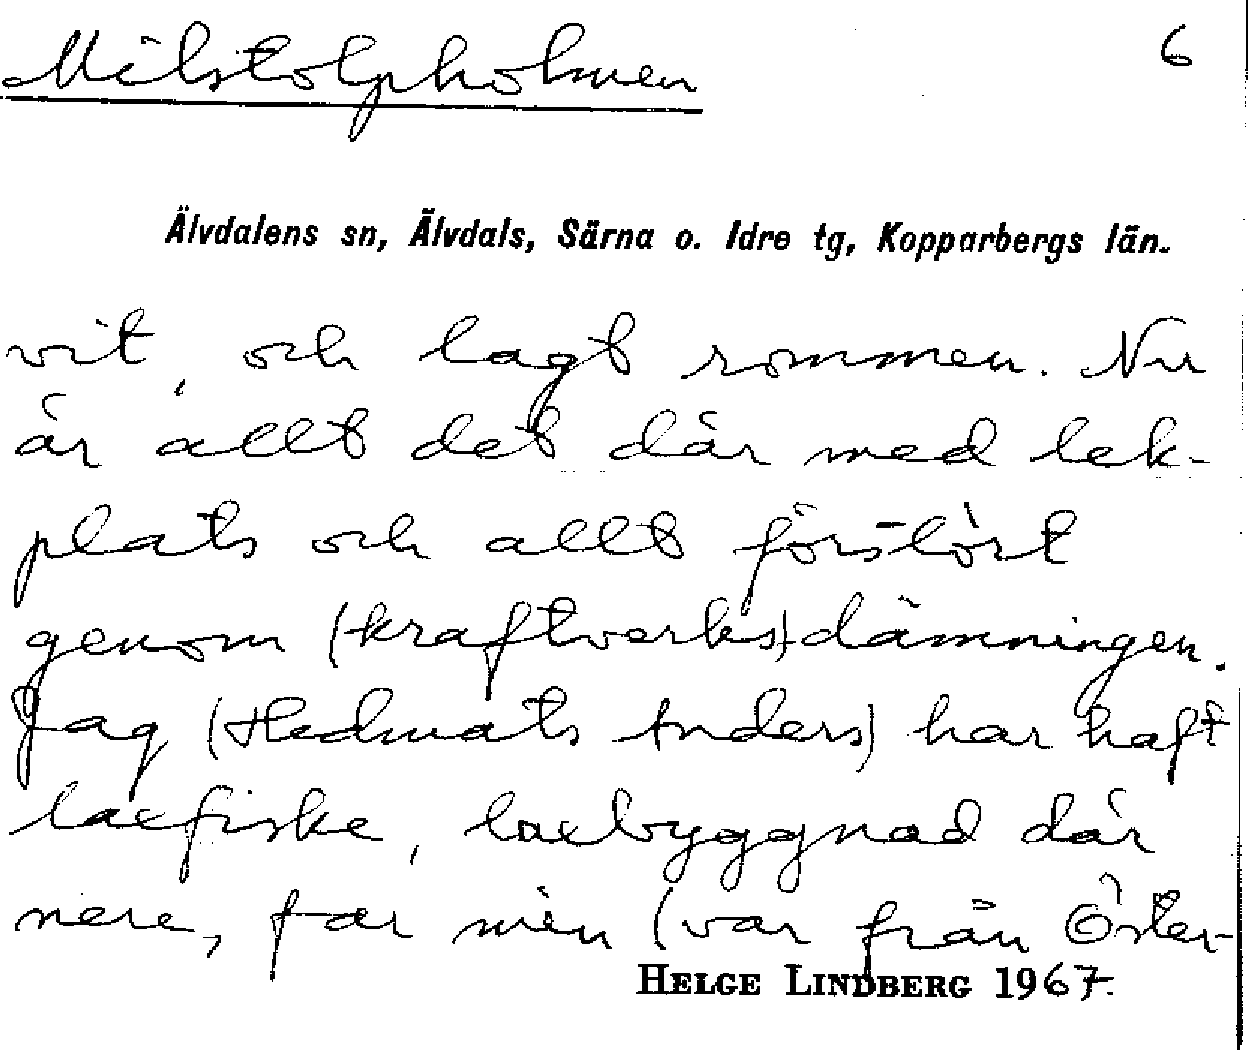 Milstolpholmen 6
Älvdalens sn, Älvdals, Särna o. Idre tg, Kopparbergs län.
vit, och lagt rommen. Nu
är allt det där med lek-
plats och allt förstört
genom (kraftverks)dämningen.
Jag (Hedmats Anders) har haft
laxfiske, laxbyggnad där
nere, far min (var från Öster-
HELGE LINDBERG 1967.